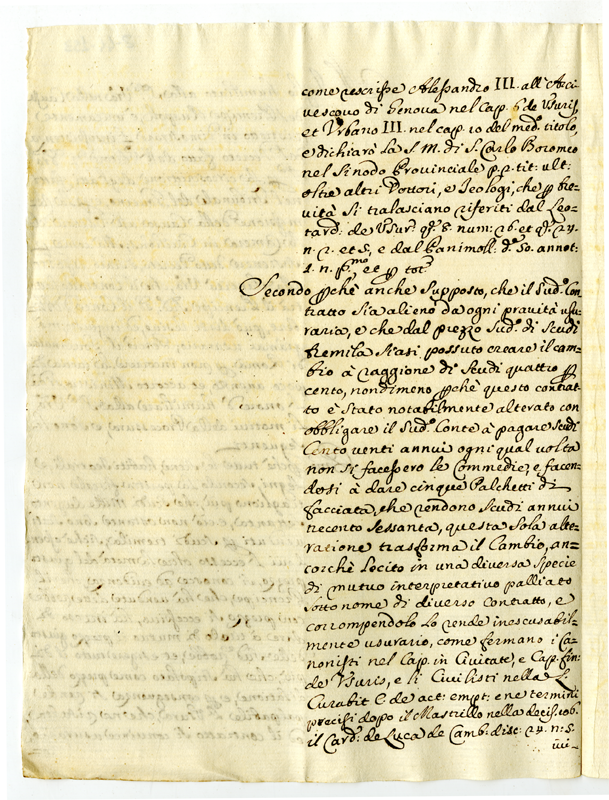 come rescrisse Alessandro III. all'Arci
vescovo di Genova nel Cap. 6 de Usuris,
et Urbano III. nel cap. 10 del med.º titolo,
e dichiarò la S. M. di S. Carlo Boromeo
nel Sinodo Provinciale p. 2. tit: ult:
oltre altri Dottori, e Teologi, che p bre=
vità si tralasciano riferiti dal Leo=
tard: de Usur: q. 8. num: 26. et q. 24.
n. 2. et 5, e dal Panimoll: d. 50. annot:
4. n. p.mo e e p tot.
Secondo pchè anche supposto, che il sud.º Con
tratto sia alieno da ogni pravità usu
raria, e che dal prezzo sud.º di Scudi
tremila siasi possuto creare il cam=
bio à raggione di Scudi quattro p
cento, nondimeno pchè questo contrat
to è stato notabilmente alterato con
obbligare il sud.º Conte à pagare scudi
Cento venti annui ogni qual volta
non si facessero le Commedie, e facen
dosi à dare cinque Palchetti di
facciata, che rendono scudi annui
trecento sessanta, questa sola alte=
ratione trasforma il Cambio, an=
corchè lecito in una diversa specie
di mutuo interpretativo palliato
sotto nome di diverso contratto, e
corrompendolo lo rende inescusabil=
mente usurario, come fermano i Ca=
nonisti nel Cap. in Civitate, e Cap. fin:
de Usuris, e li Civilisti nella L.
Curabit C. de act: empt: e ne termini
precisi dopo il Mastrillo nella decis. 106.
il Card. de Luca de Camb: disc: 24. n: 5.